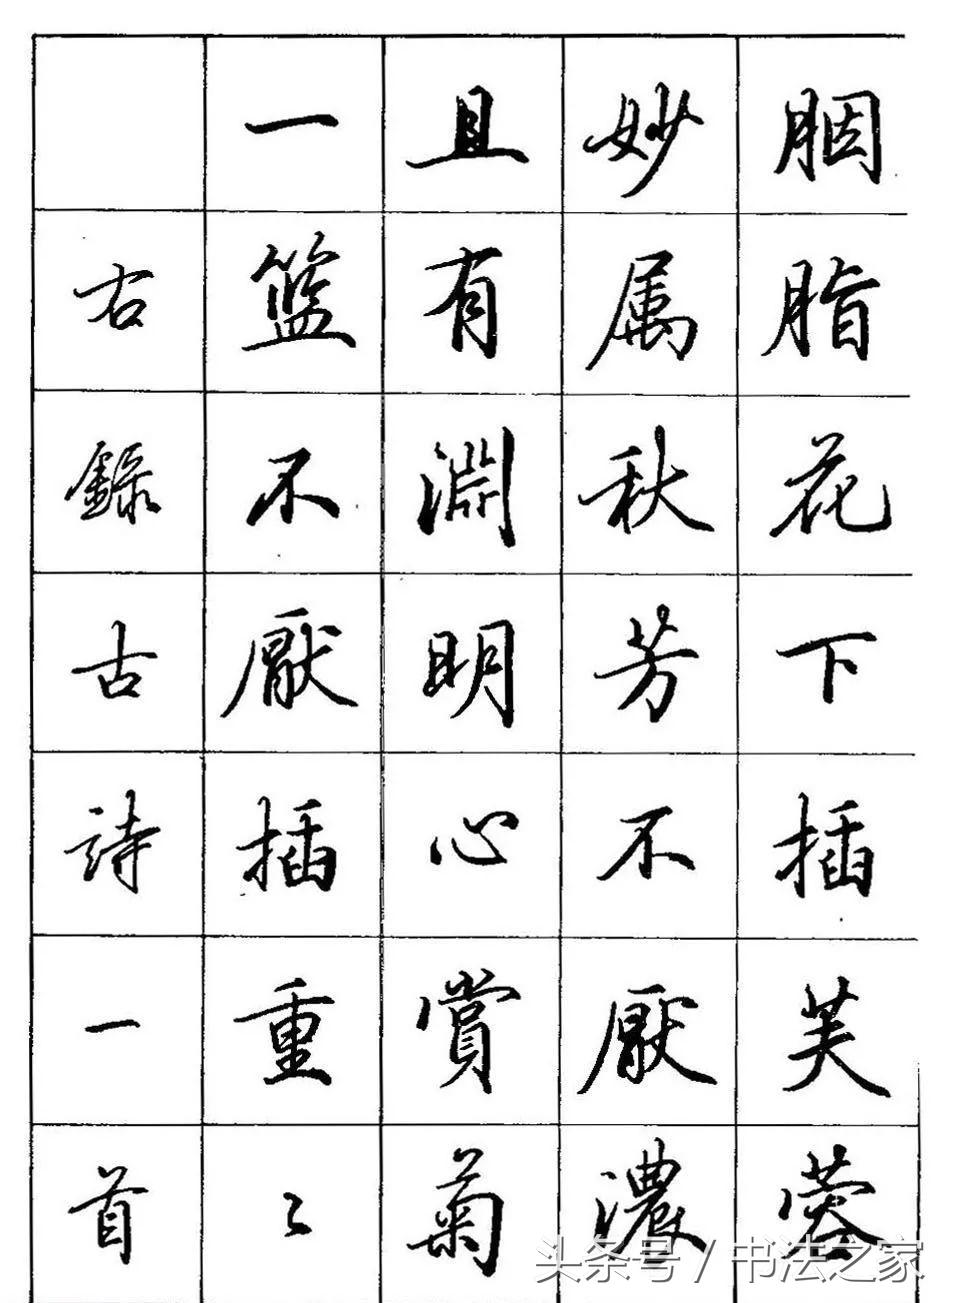 胭脂花下插芙蓉
妙属秋芳不厭濃
且有淵明心賞菊
一籃不厭插重〻
右錄古詩一首
头条号／书法之家